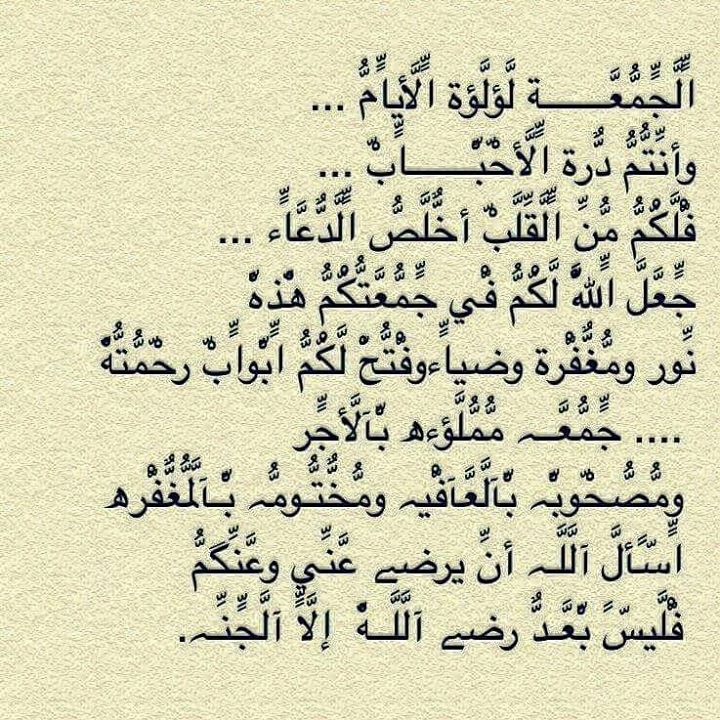 الجمعــــة لؤلؤة الأيام ...
وأنتم درة الأحبــــاب ...
فلكم من القلب أخلص الدعاء ...
جعل الله لكم في جمعتكم هذه
نور ومغفرة وضياءوفتح لكم ابواب رحمته
.... جمعــہ مملؤءه بآلأجر
ومصحوبہ بآلعآفيہ ومختـومہ بـآلمغفره
اسـألَ آللـہ أن يرضے عني وعنكم
فليس بعد رضے آللـه إلا آلجنـہ.